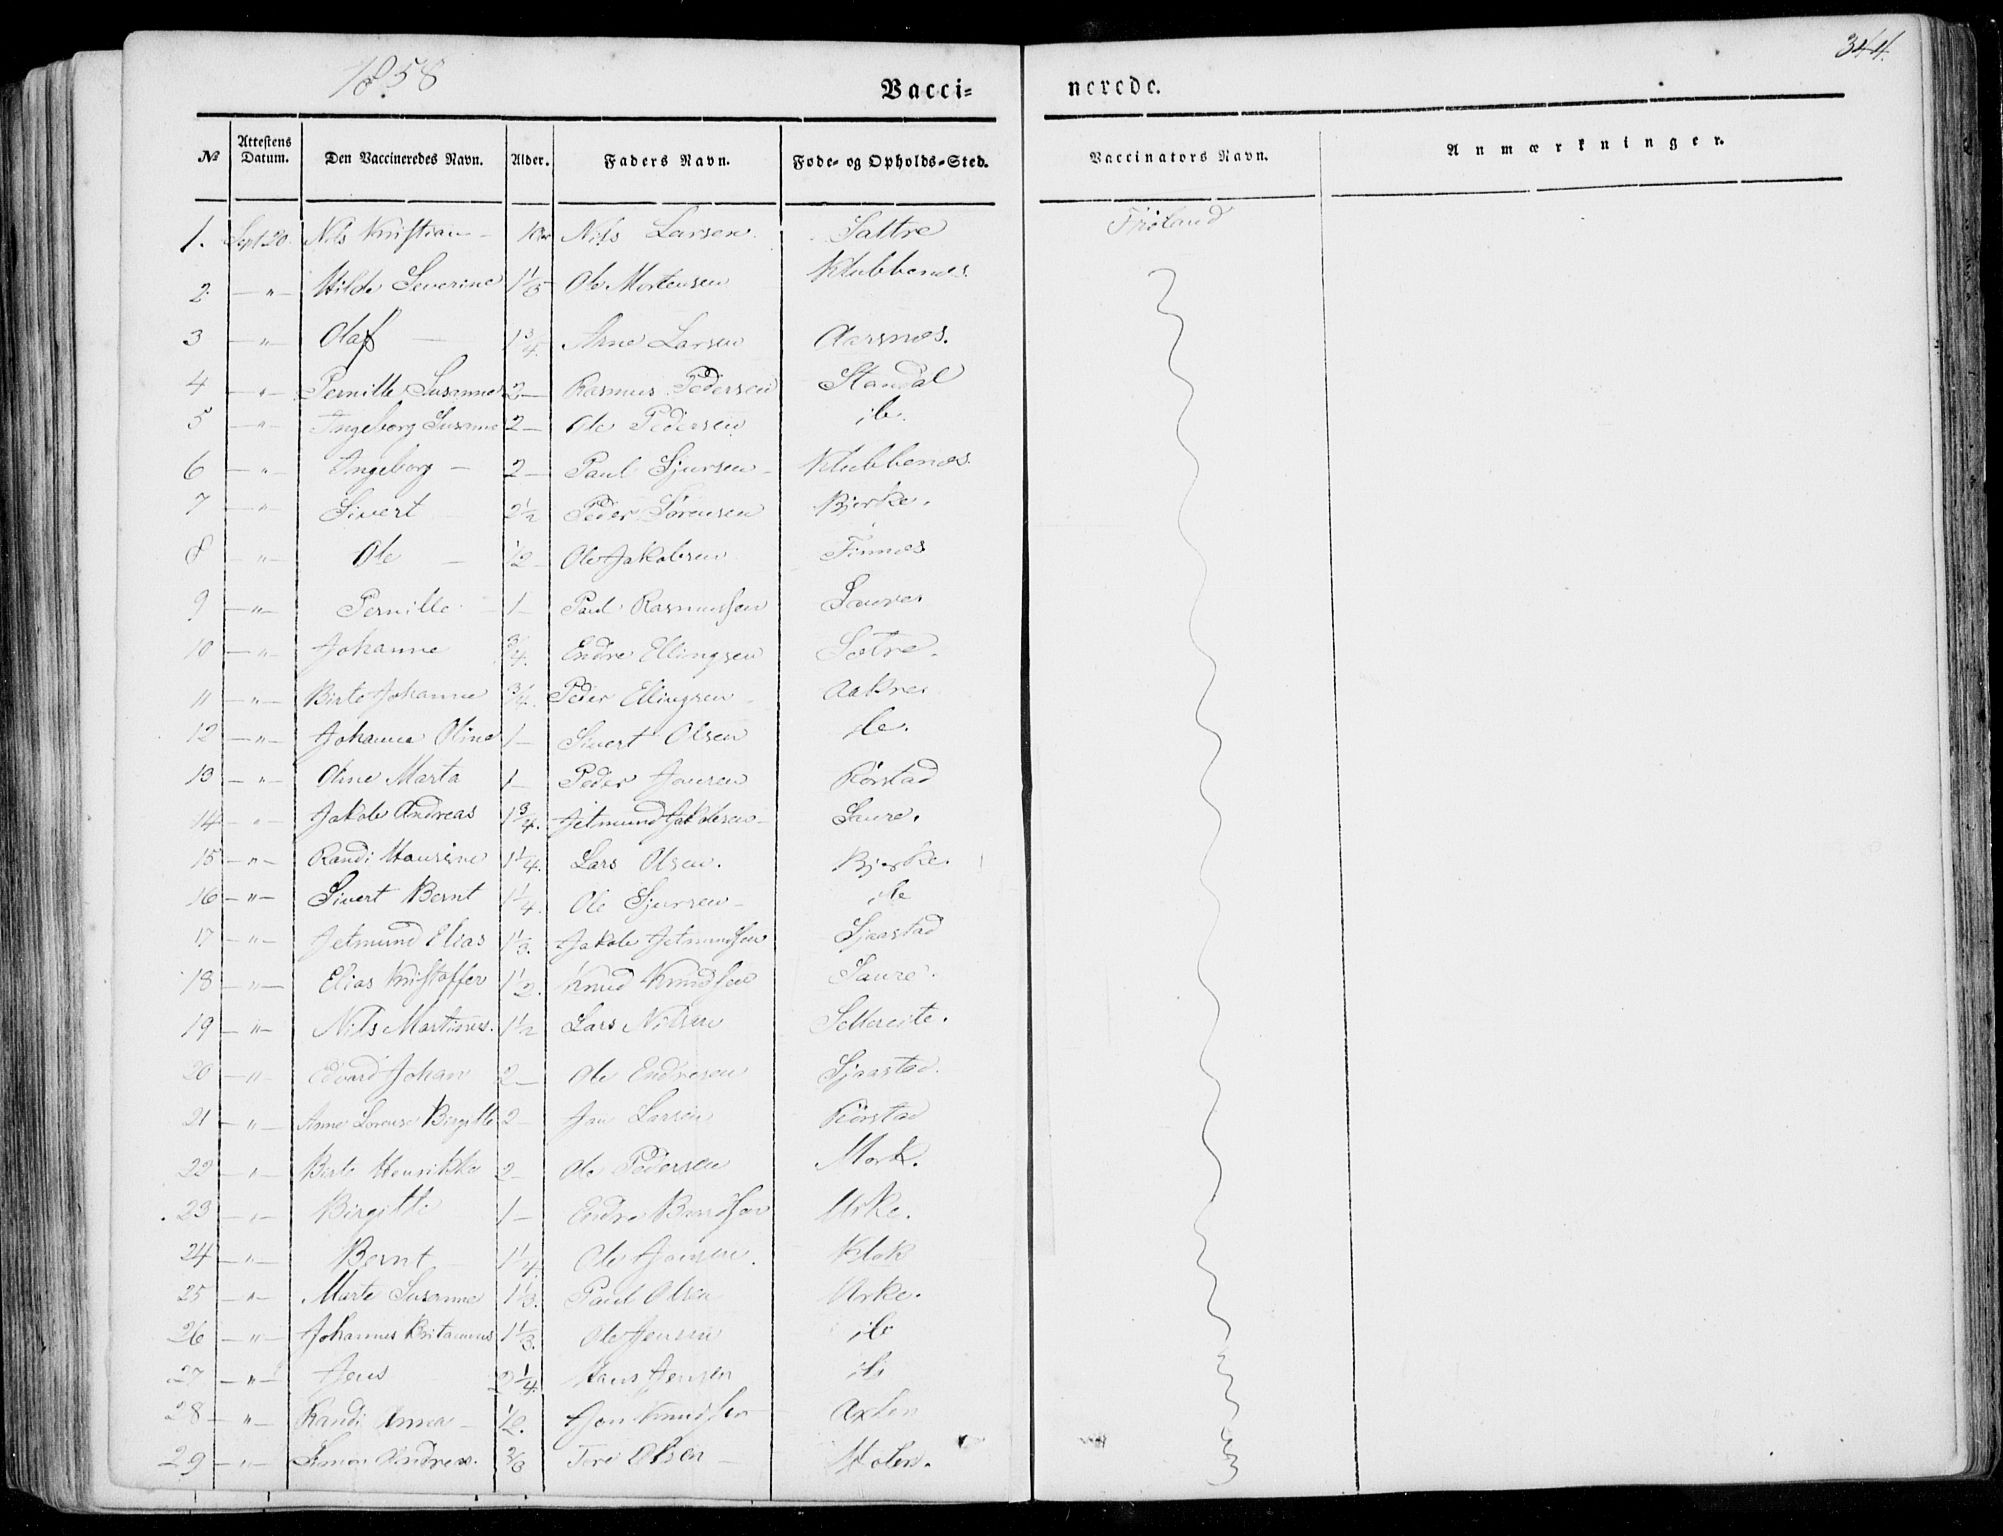 1858
344.
Vacci- nerede.
№ Attestens Datum. Den Vaccineredes Navn. Alder. Faders Navn. Føde- og Opholds-Sted. Vaccinators Navn. Anmærkninger.
1. Sept 20. Nils Kristian - Nils Larsen. Sættre Frøland
2. - " - Hilde Severine 1 1/5 Ole Mortensen Klubbenes.
3 - " - Olaf - 1 3/4. Arne Larsen Aarsnes.
4 - " - Pernille Susanne 2 - Rasmus Pedersen Standal
5 - " - Ingeborg Susanne 2 - Ole Pedersen ib.
6 - " - Ingeborg - 2 - Paul Sjursen - Klubbenes.
7 - " - Sivert - 2 1/2 Peder Sørensen Bjerke.
8 - " - Ole - 1/2 - Ole Jakobsen Finnes
9 - " - Pernille - 1 - Paul Rasmussen Saure
10 - " - Johanne 3/4. Endre Ellingsen Sætre.
11 - " - Birte Johanne 3/4. Peder Ellingsen - Aakre
12 - " - Johanne Oline 1 - Sivert Olsen ib.
13 - " - Oline Marta 1 - Peder Jonsen Rørstad
14 - " - Jakob Andreas 1 3/4. Jetmund Jakobsen - Saure.
15 - " - Randi Hansine 1 1/4. Lars Olsen. Bjerke.
16 - " - Sivert Bernt 1 1/4. Ole Sjursen - ib
17 - " - Jetmund Elias 1 1/3. Jakob Jetmundsen Sjaastad
18 - " - Elias Kristoffer 1 1/2. Knud Knudsen Saure.
19 - " - Nils Martinus. 1 1/2 Lars Nilsen Sellereite.
20 - " - Edvard Johan 2 - Ole Endresen Sjaastad.
21 - " - Anne Lovise Birgitte 2 - Jon Larsen Rørstad
22 - " - Birte Henrikke 2 - Ole Pedersen Mork.
23 - " - Birgitte 1 - Endre Urke.
24 - " - Bernt - 1 1/4. Ole Jonsen. Klok
25 - " - Marte Susanne 1 1/3. Paul Olsen Urke.
26 - " - Johannes 1 1/3. Ole Jensen ib
27 - " - Jens 2 1/4. Hans Jensen ib
28 - " - Randi Anna - 1/2. Jon Knudsen
29 - " - Simon Andreas. 2/3 Tore Olsen - Molen.